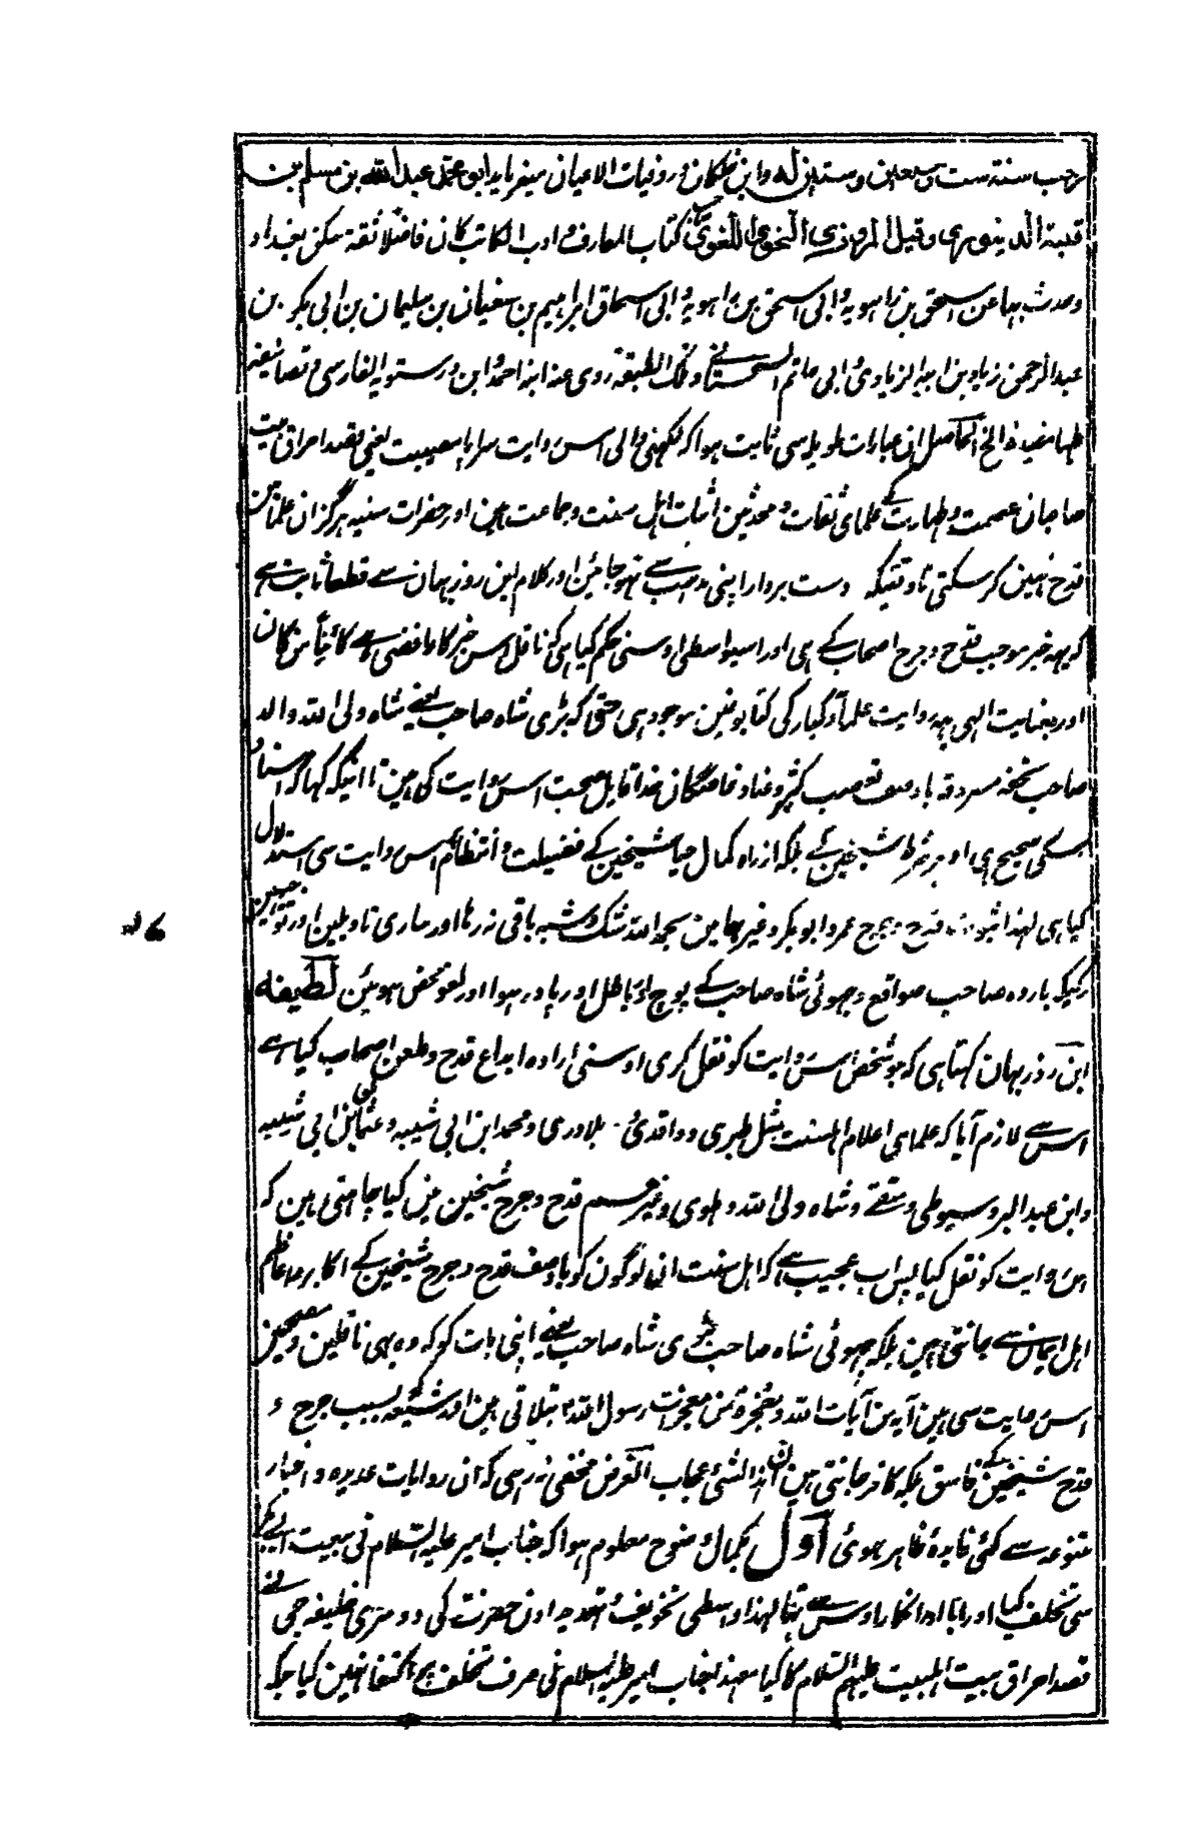 رجب سنة ست وسبعين وستين له وابن خلكان در وفيات الاعيان ميفرمايد ابو محمد عبد الله بن مسلم بن
قتيبة الدينوري وقيل المروزي النحوي اللغوي كتاب المعارف وادب الكاتب كان فاضلا ثقة سكن بغداد
وحدث بها عن اسحق بن راهويه وابي اسحق بن راهويه وابي اسحاق ابراهيم بن سفيان بن سليمان بن ابي بكر بن
عبد الرحمن زياد بن ابيه الزيادي وابي حاتم السجستاني وتلك الطبقة روى عنه ابنه احمد وابن درستويه الفارسي وتصانيفه
كلها مفيدة الخ الحاصل ان عبارات طويله سی ثابت ہوا کہ لکہنی والی اس روایت سراپا مصیبت یعنی قصد احراق بیت
صاحبان عصمت وطہارت کے علمای ثقات و محدثین اثبات اہل سنت وجماعت ہین اور حضرات سنیہ ہرگز ان علما مین
قدح نہین کر سکتی تا وقتیکہ دست بردار اپنی مذہب سے نہو جائین اور کلام ابن روزبہان سے قطعا ثابت ہے
کہ یہہ خبر موجب قدح وجرح اصحاب کے ہی اور اسیواسطی اوسنی حکم کیا ہی کہ ناقل اس خبر کا رافضی ہے کائنا من کان
اور بعنایت الہی یہہ روایت علمآء کبار کی کتابونمین موجود ہی حتی کہ بڑی شاہ صاحب یعنے شاہ ولی اللہ والد
صاحب تحفہ مسروقہ با وصف تعصب کثیر وعناد خاصگان خدا قابل صحت اس روایت کی ہین تا اینکہ کہا کہ اسناد
اسکی صحیح ہی اوپر شرط شیخین کے بلکہ از راہ کمال حیا شیخین کے فضیلت وانتظام اس روایت سی استدلال
کیا ہی لہذا ثبوت قدح وجرح عمر و ابو بکر وغیرہما مین بحمد اللہ شک وشبہ باقی نہ رہا اور ساری تاویلین اور توجیہین
رکیکہ باردہ صاحب صواقع وچھوئی شاہ صاحب کے پوچ اور باطل اور پادر ہوا اور لغو محض ہوئین لطیفه
ابن روزبہان کہتا ہی کہ جو شخص اس روایت کو نقل کری اوسنی ارادہ ابداع قدح وطعن اصحاب کیا ہے
اس سے لازم آیا کہ علمای اعلام اہلسنت مثل طبری وواقدی بلاذری ومحمد ابن ابی شیبہ وعثمان بن ابی شیبہ
وابن عبد البر وسیوطی ومتقے وشاہ ولی اللہ دہلوی وغیرہم قدح وجرح شیخین مین کیا چاہتی ہین کہ
اس روایت کو نقل کیا پس اب عجیب ہے کہ اہل سنت انہی لوگون کو باوصف قدح وجرح شیخین کے اکابر واعاظم
اہل ایمان سے جانتی ہین بلکہ چھوئی شاہ صاحب بڑی شاہ صاحب یعنے اپنی بات کو کہ وہ بہی ناقلین و مصححین
اس روایت سی ہین آیہ من آیات اللہ ومعجزة من معجزات رسول اللہ بتلاتی ہین اور شیعہ بسبب جرح و
قدح شیخین کے فاسق بلکہ کافر جانتی ہین ان هذا لشئ عجاب الغرض مخفی نہ رہی کہ ان روایات عدیدہ واخبار
متنوعہ سے کئی فایدہ ظاہر ہوئی اول بکمال وضوح معلوم ہوا کہ جناب امیر علیہ السلام نی بیعت ابی بکر
سی تخلف کیا اور ابا اور انکار اوس سے تہا لہذا واسطی تخویف وتہدید اون حضرت کی دوسری خلیفہ جی نے
قصد احراق بیت اہلبیت علیہم السلام کا کیا معہذا جناب امیر علیہ السلام نی صرف تخلف پر اکتفا نہین کیا بلکہ